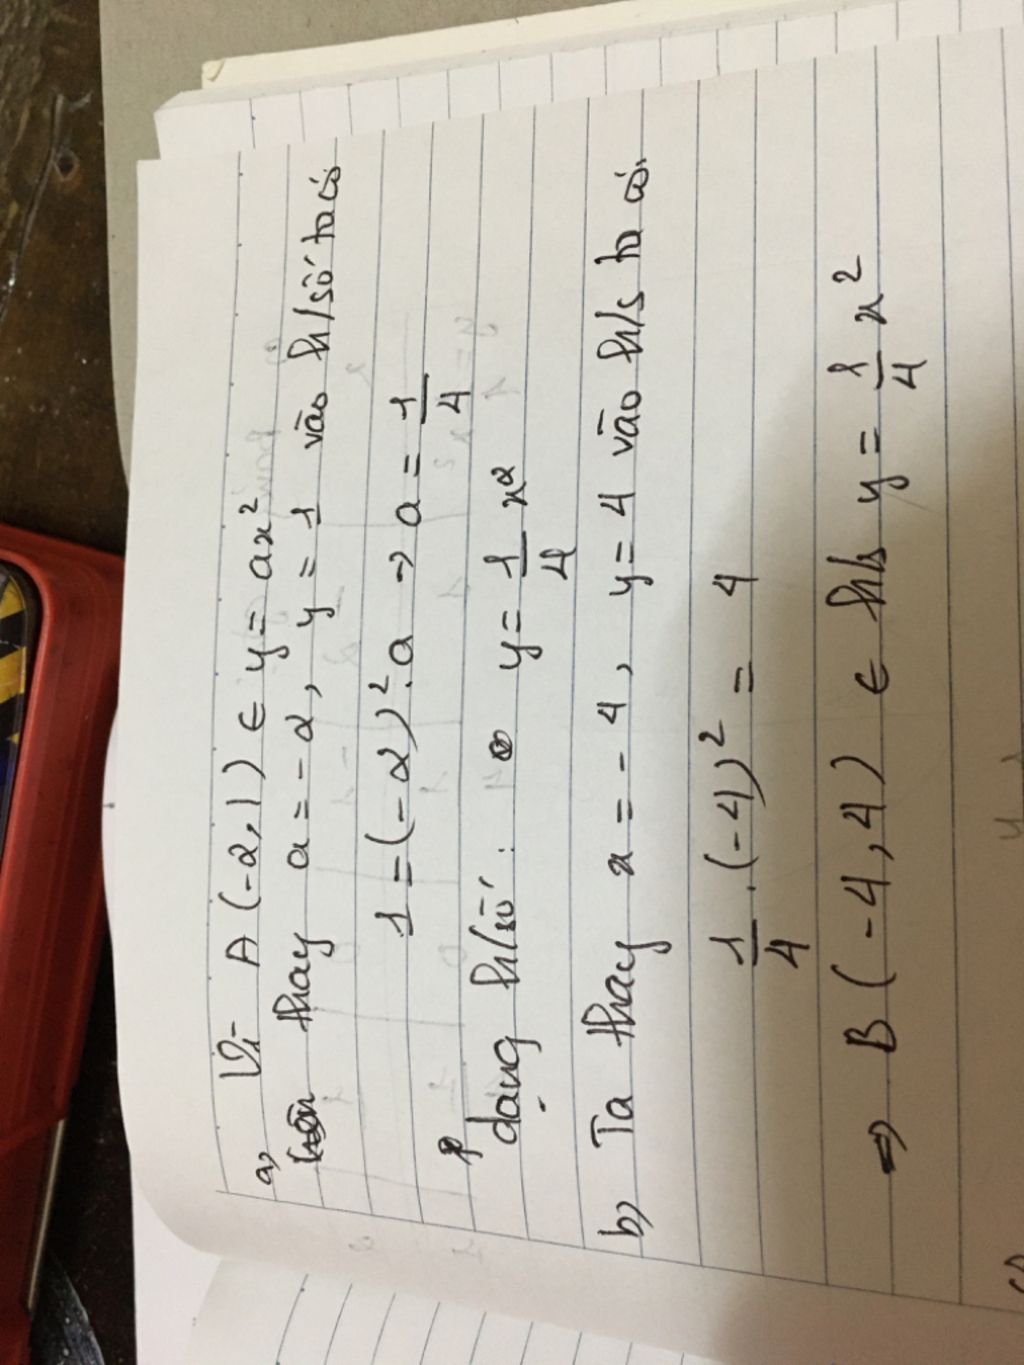 a) Vì A (-2, 1) ∈ y = ax²
nên thay a = -2, y = 1 vào h/số ta có
1 = (-2)². a → a = 1/4
dạng h/số : y = 1/4 x²
b) Ta thay x = -4, y = 4 vào h/s ta có.
1/4 . (-4)² = 4
⇒ B (-4, 4) ∈ h/s y = 1/4 x²